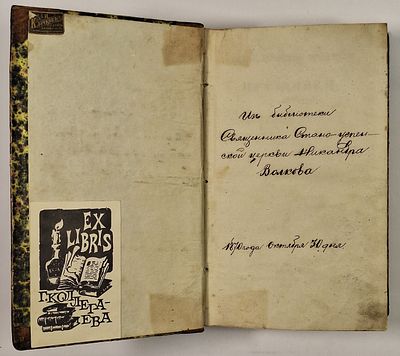 EX
LIBRIS
Г. КОЛЛЕГА-
ЕВА
Изъ библіотеки
Священника Стано-успен-
ской церкви Никандра
Волкова
1870 года Октября 30 дня.